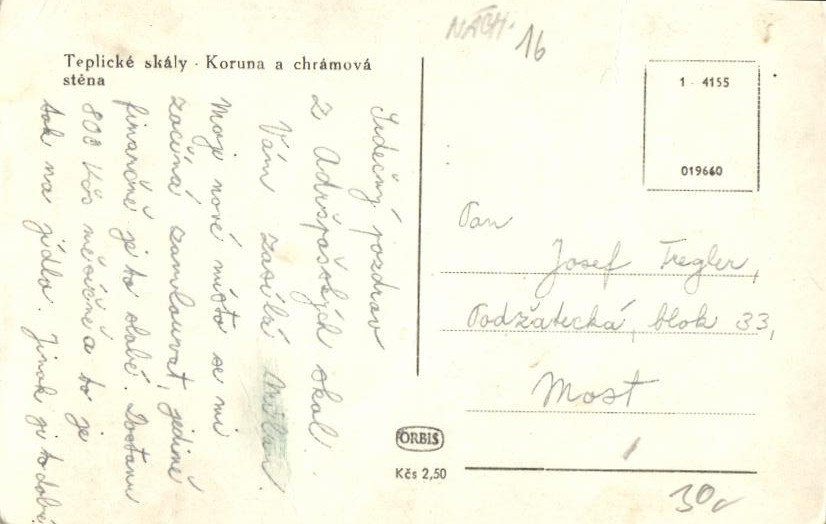 Teplické skály · Koruna a chrámová
stěna
Srdečný pozdrav
z Adršpašských skal.
Vám zasílá
Moje nové místo se mi
začíná zamlouvat, jedině
finančně je to slabé. Dostanu
800 Kčs měsíčně a to je
tak na jídlo. Jinak je to dobré
NÁCH. 16
1 - 4155
019660
Pan
Josef Tregler,
Podžatecká, blok 33,
Most
ORBIS
Kčs 2,50
30,-